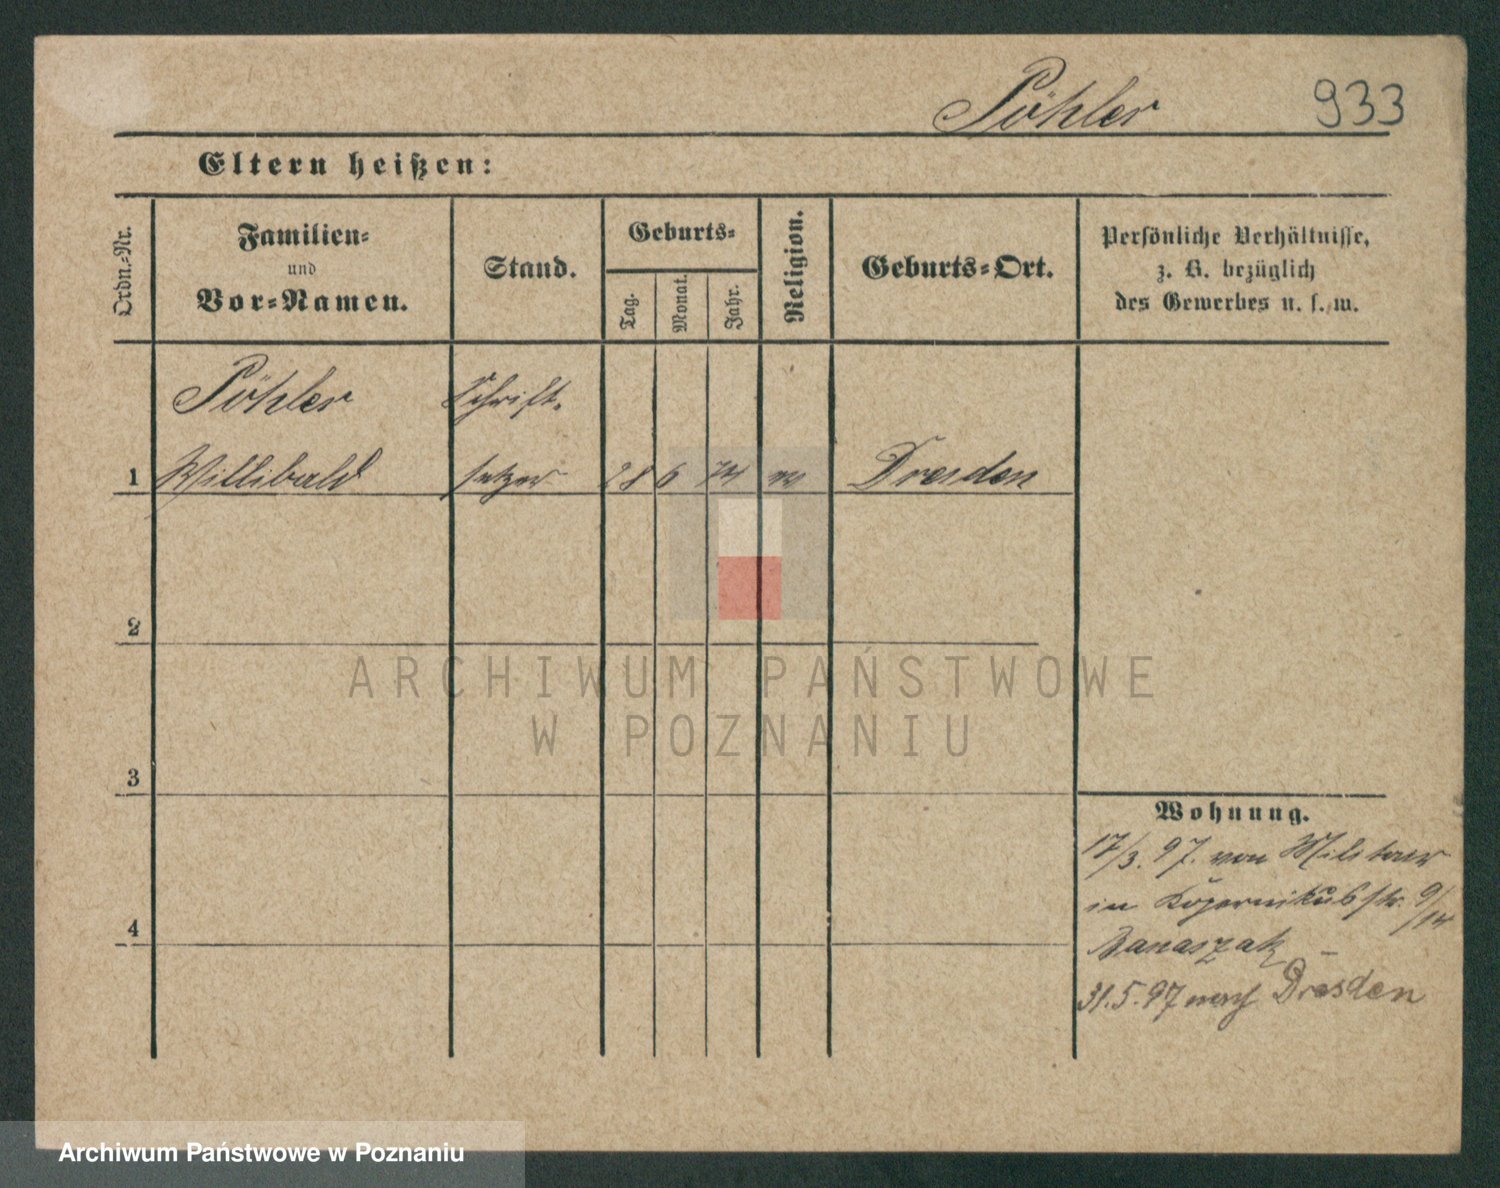 Pöhler 933
Eltern heißen:
Ordn.-Nr.
Familien-
und
Vor-Namen.
Stand.
Geburts-
Tag.
Monat.
Jahr.
Religion.
Geburts-Ort.
Persönliche Verhältnisse,
z. B. bezüglich
des Gewerbes u. s. w.
Pöhler Schrift-
1 Willibald setzer 28 6 74 Dresden
2
3
4
Wohnung.
17/3. 97. von Militair
in Kopernikusstr. 9/14
Banaszak
31.5.97 nach Dresden
ARCHIWUM PAŃSTWOWE
W POZNANIU
Archiwum Państwowe w Poznaniu